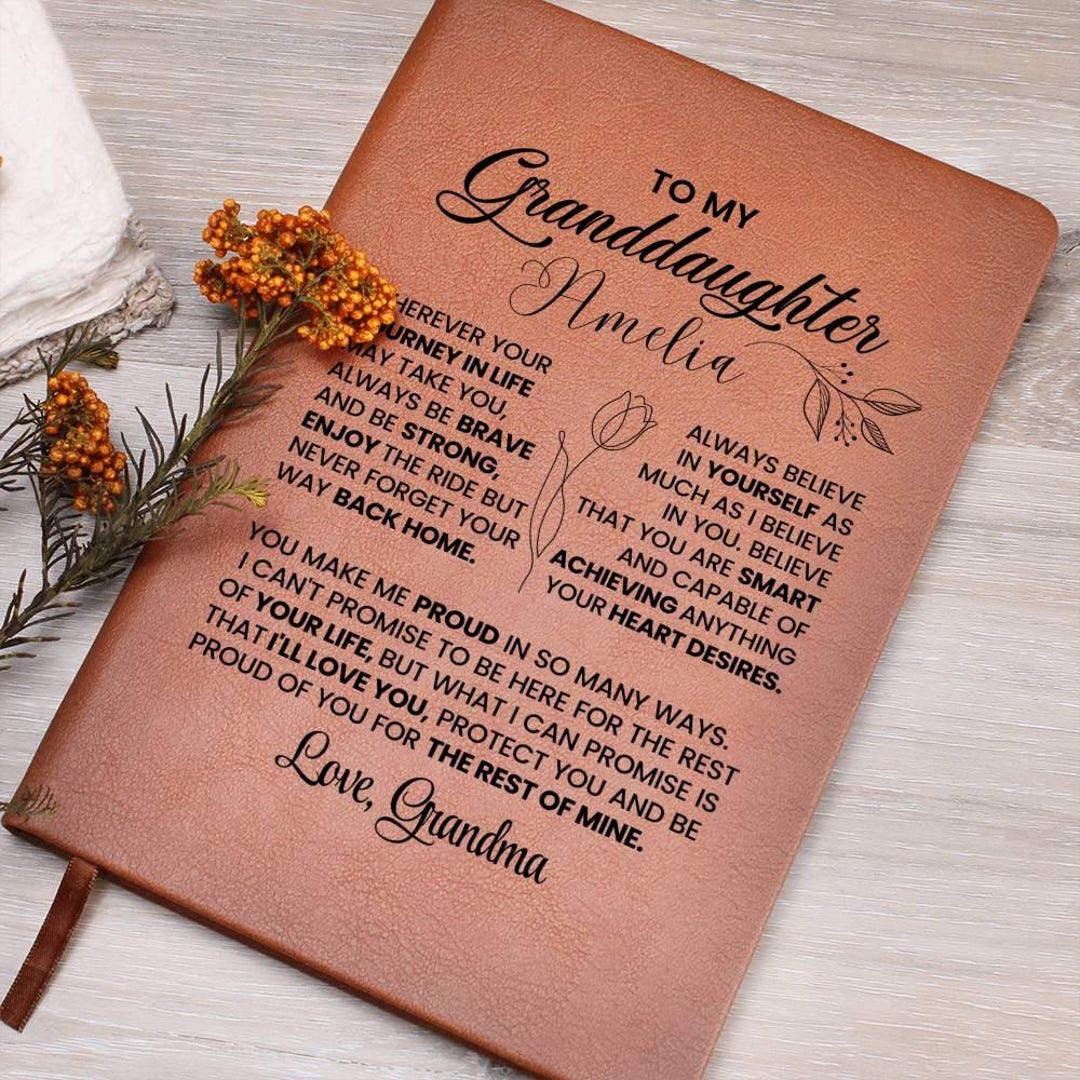 TO MY
Granddaughter
Amelia
HEREVER YOUR
URNEY IN LIFE
MAY TAKE YOU,
ALWAYS BE BRAVE
AND BE STRONG,
ENJOY THE RIDE BUT
NEVER FORGET YOUR
WAY BACK HOME.
ALWAYS BELIEVE
IN YOURSELF AS
MUCH AS I BELIEVE
IN YOU. BELIEVE
THAT YOU ARE SMART
AND CAPABLE OF
ACHIEVING ANYTHING
YOUR HEART DESIRES.
YOU MAKE ME PROUD IN SO MANY WAYS.
I CAN'T PROMISE TO BE HERE FOR THE REST
OF YOUR LIFE, BUT WHAT I CAN PROMISE IS
THAT I'LL LOVE YOU, PROTECT YOU AND BE
PROUD OF YOU FOR THE REST OF MINE.
Love, Grandma